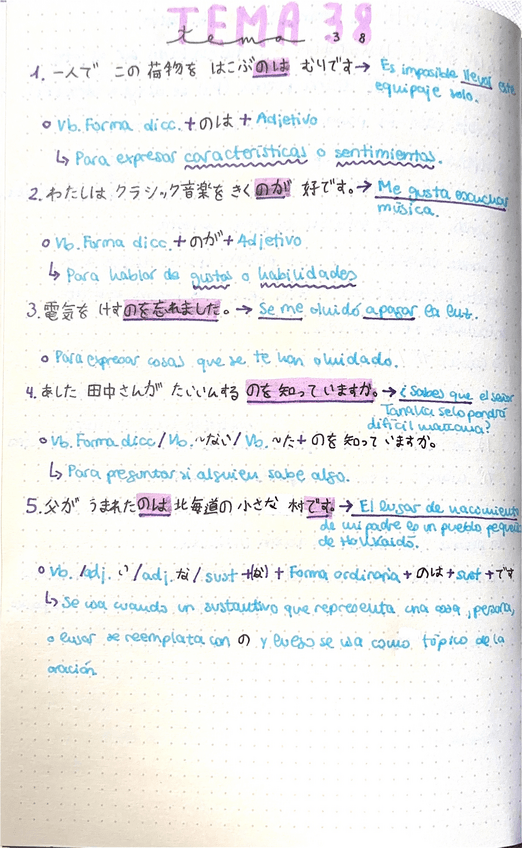 TEMA 38
tema 38
1. 一人で この 荷物を はこぶのは むりです→ Es imposible llevar este
equipaje solo.
o Vb. Forma dicc. + のは + Adjetivo
↳ Para expresar características o sentimientos.
2. わたしは クラシック音楽を きくのが 好です。→ Me gusta escuchar
música.
o Vb. Forma dicc. + のが + Adjetivo
↳ Para hablar de gustos o habilidades
3. 電気を けすのを忘れました。→ Se me olvidó apagar la luz.
o Para expresar cosas que se te han olvidado.
4. あした 田中さんが たいいんする のを 知っていますか。→ ¿Sabes que el señor
Tanaka
mañana?
o Vb. Forma dicc/Vb. ~ない/Vb. ~た + のを 知って いますか。
↳ Para preguntar si alguien sabe algo.
5. 父が うまれたのは 北海道の 小さな 村です。→ El lugar de nacimiento
de mi padre es un pueblo pequeño
de Hokkaido.
o Vb. /adj. い/adj. な/ sust +(な) + Forma ordinaria + のは + sust + です
↳ Se usa cuando un sustantivo que representa una cosa, persona,
o lugar se reemplata con の y luego se usa como tópico de la
oración